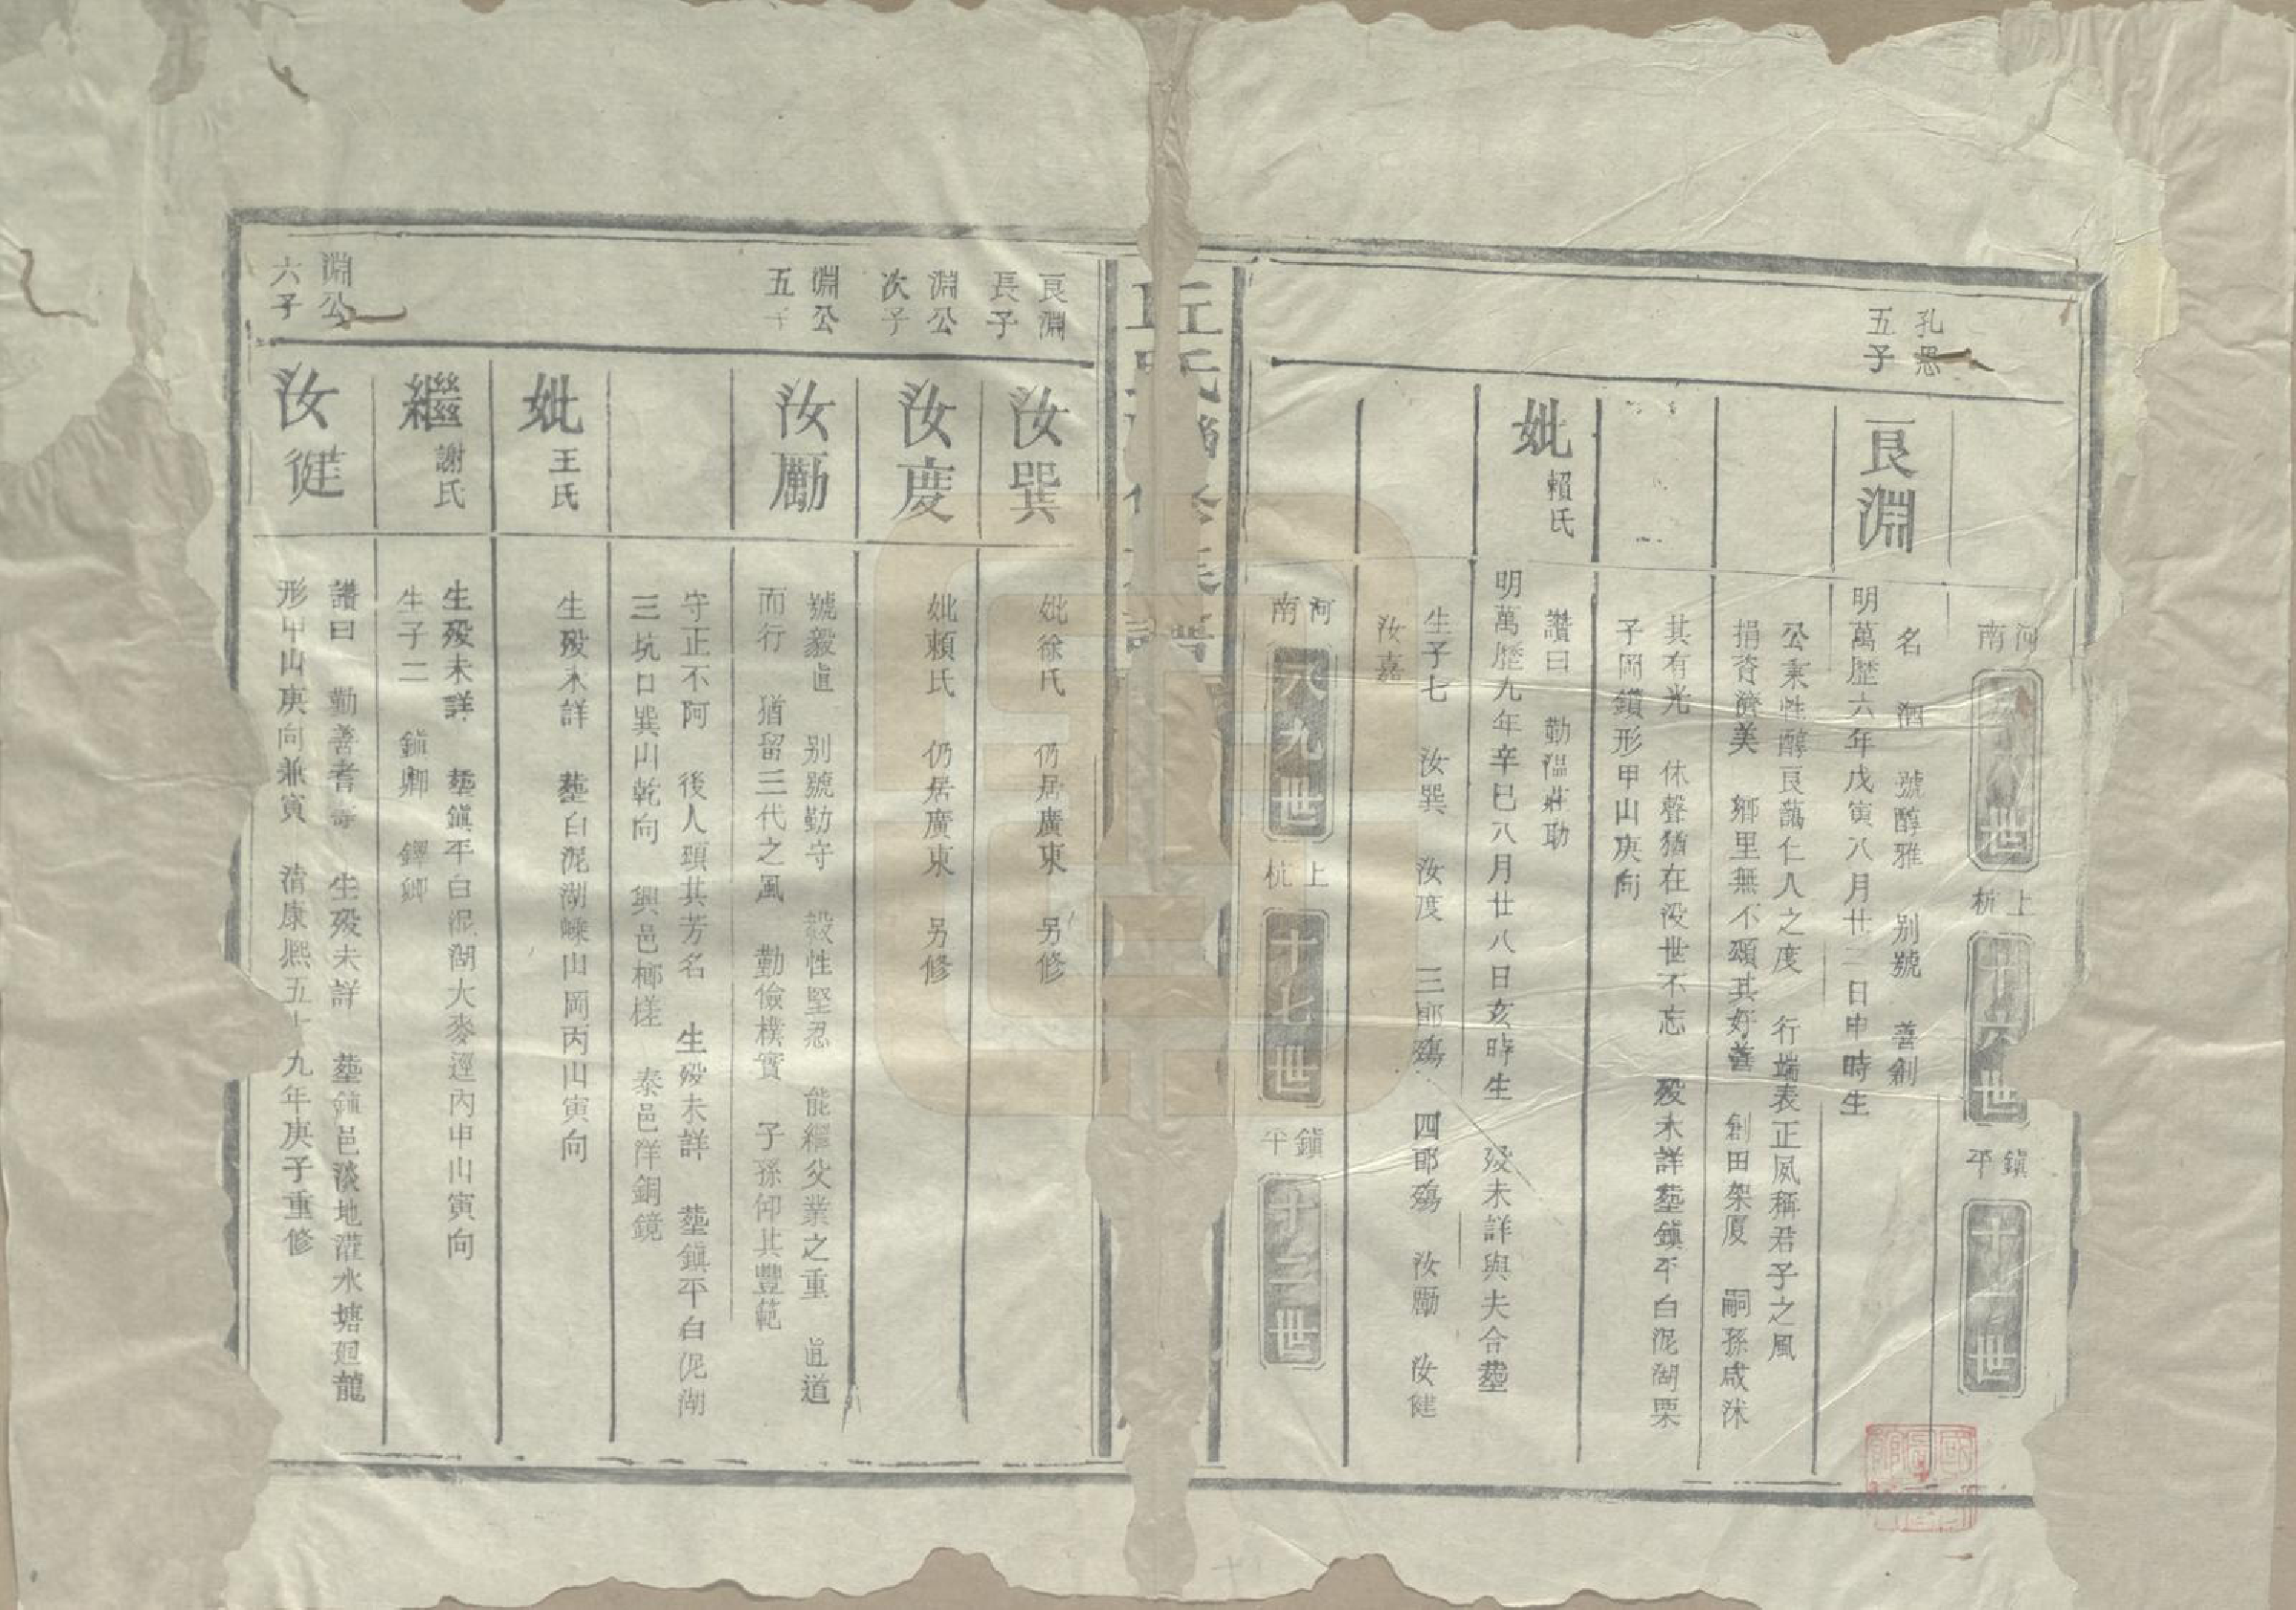 河南 世 上杭 十六世 鎮平 十一世
孔愚
五子
良淵
名 泗 號醇雅 别號 善創
明萬歷六年戊寅八月廿二日申時生
公秉性醇良藹仁人之度 行端表正夙稱君子之風
捐資濟美 鄉里無不頌其好善 創田架厦 嗣孫咸沐
其有光 休聲猶在没世不忘 殁未詳塟鎮平白泥湖栗
子岡鎖形甲山庚向
妣 賴氏
讚曰 勤温莊助
明萬歷九年辛巳八月廿八日亥時生 殁未詳與夫合塟
生子七 汝巽 汝度 三郎殤 四郎殤 汝勵 汝健
汝嘉
河南 九世 上杭 十七世 鎮平 十二世
丘氏
良淵
長子
汝巽
妣徐氏 仍居廣東 另修
淵公
次子
汝度
妣賴氏 仍居廣東 另修
淵公
五子
汝勵
號毅直 别號勤守 毅性堅忍 能繼父業之重 直道
而行 猶留三代之風 勤儉樸實 子孫仰其豐範
守正不阿 後人頌其芳名 生殁未詳 塟鎮平白泥湖
三坑口巽山乾向 興邑槨槎 泰邑洋銅鏡
妣 王氏
生殁未詳 塟白泥湖崠山岡丙山寅向
繼 謝氏
生殁未詳 塟鎮平白泥湖大麥逕内申山寅向
生子二 鎮卿 鐸卿
淵公
六子
汝健
讚曰 勤善者壽 生殁未詳 塟鎮邑淡地灌水塘廻龍
形甲山庚向兼寅 清康熙五十九年庚子重修